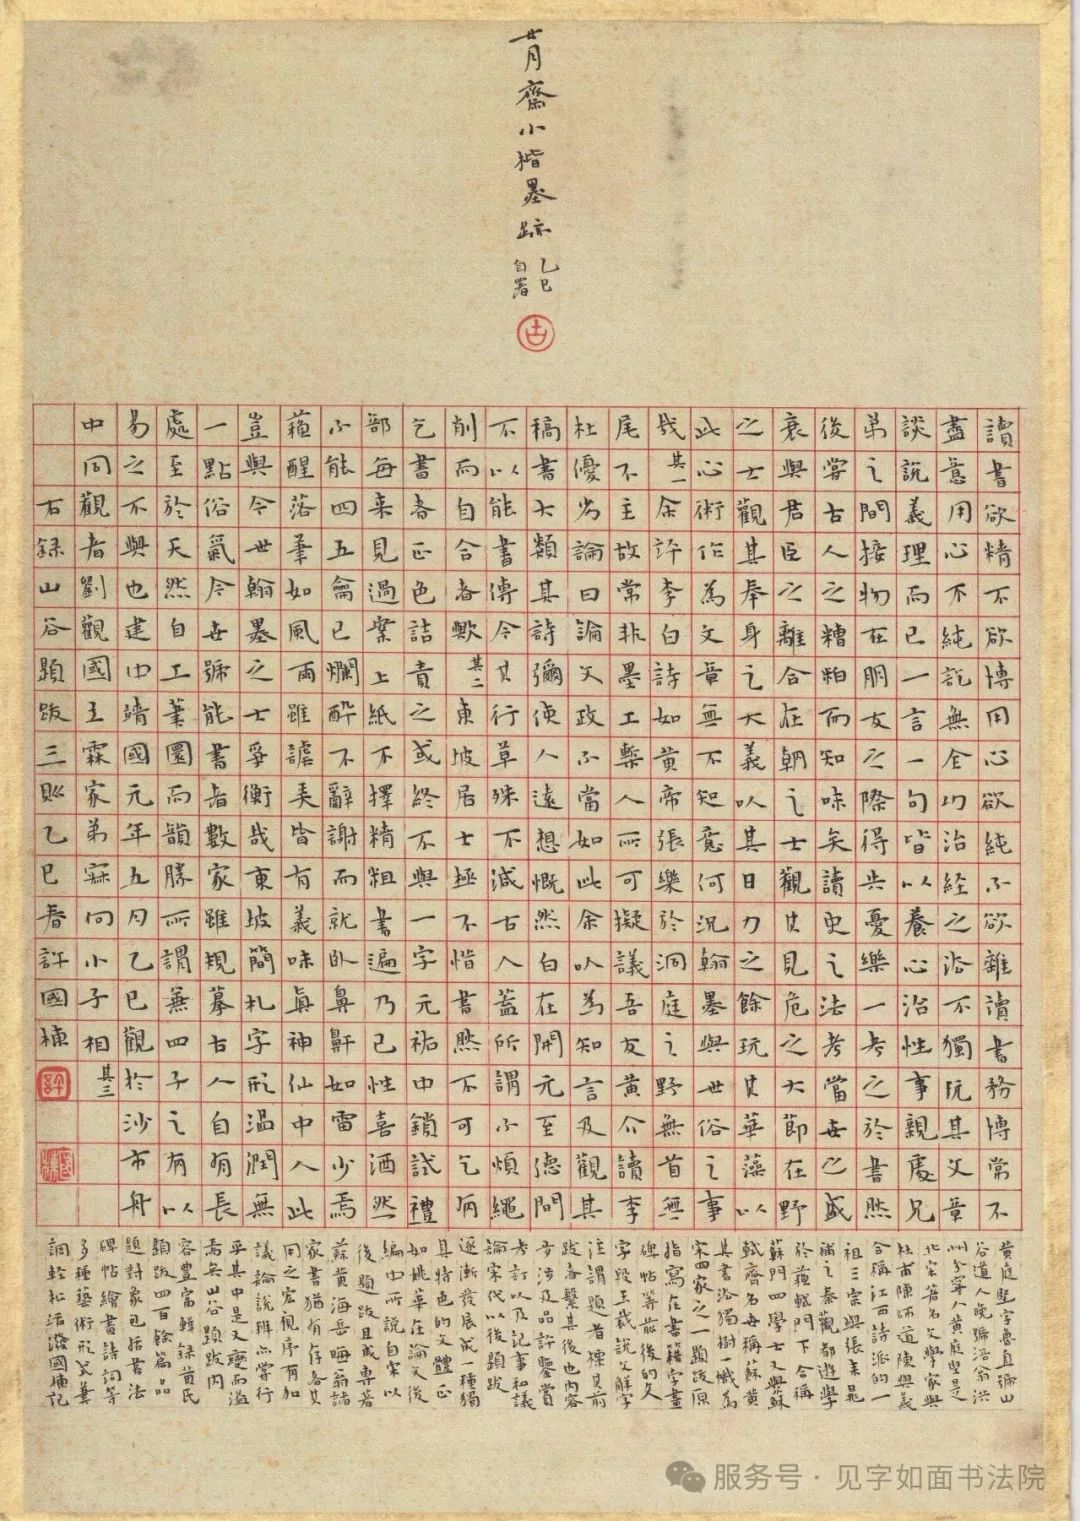 齋小楷墨跡
乙巳
自署
古
讀書欲精不欲博用心欲純不欲雜讀書務博常不
盡意用心不純訖無全功治經之法不獨玩其文章
談說義理而已一言一句皆以養心治性事親處兄
弟之間接物在朋友之際得失憂樂一考之於書然
後嘗古人之糟粕而知味矣讀史之法考當世之盛
衰與君臣之離合在朝之士觀其見危之大節在野
之士觀其奉身之大義以其日力之餘玩其華藻以
此心術作為文章無不如意何況翰墨與世俗之事
哉其一余許李白詩如黃帝張樂於洞庭之野無首無
尾不主故常非墨工槧人所可擬議吾友黃介讀李
杜優劣論曰論文政不當如此余以為知言及觀其
稿書大類其詩彌使人遠想慨然白在開元至德間
不以能書傳今其行草殊不減古人蓋所謂不煩繩
削而自合者歟其二東坡居士極不惜書然不可乞有
乞書者正色詰責之或終不與一字元祐中鎖試禮
部每來見過案上紙不擇精粗書遍乃已性喜酒然
不能四五龠已爛醉不辭謝而就臥鼻鼾如雷少焉
蘓醒落筆如風雨雖謔弄皆有義味真神仙中人此
豈與今世翰墨之士爭衡哉東坡簡札字形溫潤無
一點俗氣今世號能書者數家雖規摹古人自有長
處至於天然自工筆圓而韻勝所謂兼四子之有以
易之不與也建中靖國元年五月乙巳觀於沙市舟
中同觀者劉觀國王霖家弟寐向小子相其三
右錄山谷題跋三則乙巳春許國棟
許
國棟
黃庭堅字魯直號山
谷道人晚號涪翁洪
州分寧人黃庭堅是
北宋著名文學家與
杜甫陳師道陳與義
合稱江西詩派的一
祖三宗與張耒晁
補之秦觀都遊學
於蘓軾門下合稱
蘇門四學士又與蘇
軾齊名世稱蘇黃
其書法獨樹一幟為
宋四家之一題跋原
指寫在書籍字畫
碑帖等前後的文
字段玉裁說文解字
注謂題者標其前
跋者繫其後也內容
多涉及品評鑒賞
考訂以及記事和議
論宋代以後題跋
逐漸發展成一種獨
具特色的文體正
如姚華在論文後
編中所說自宋以
後題跋且成專著
蘇黃海岳晦翁諸
家書猶有存者其
用之宏視序有加
議論說辨亦嘗行
乎其中是又變而溢
焉矣山谷題跋內
容豐富輯錄黃氏
題跋四百餘篇品
題對象包括書法
碑帖繪書詩詞等
多種藝術形式筆
調輕松活潑國棟記
服务号·见字如面书法院